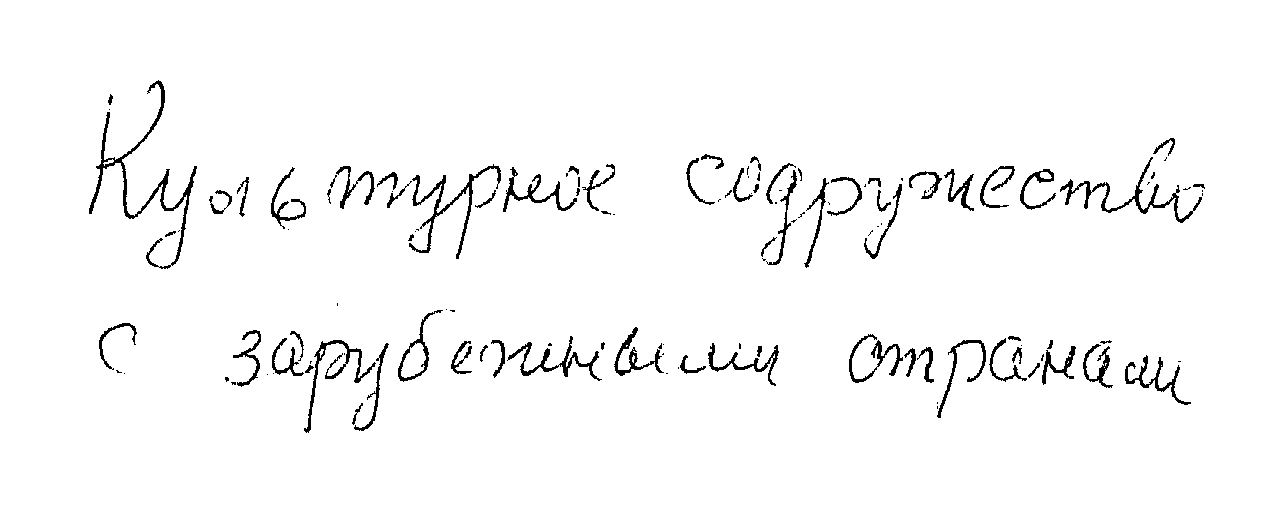 Культурное содружество
с зарубежными странами